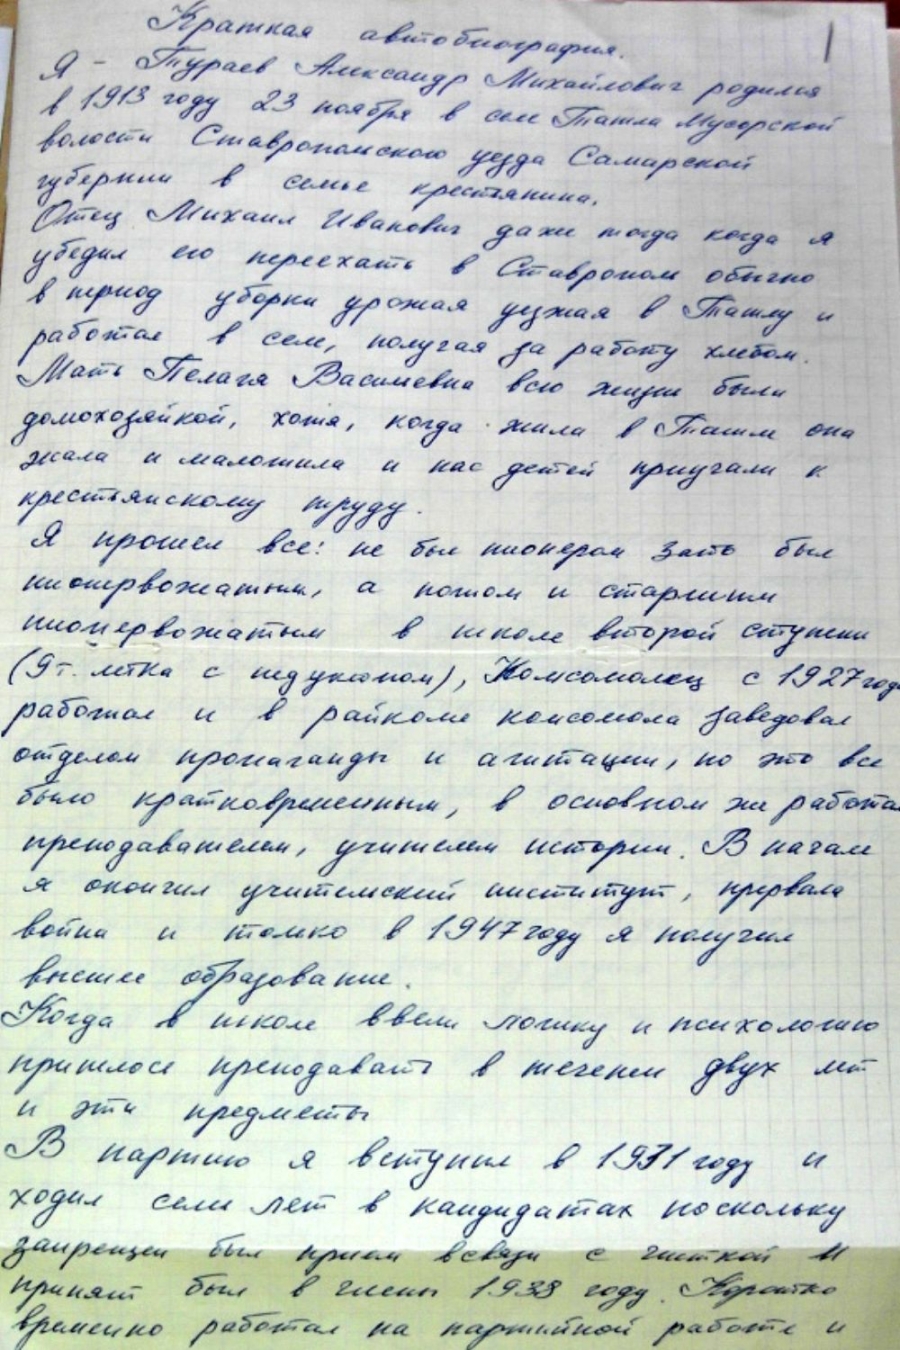 1
Краткая автобиография.
Я - Тураев Александр Михайлович родился
в 1913 году 23 ноября в селе Ташла Мусорской
волости Ставропольского уезда Самарской
губернии в семье крестьянина.
Отец Михаил Иванович даже тогда когда я
убедил его переехать в Ставрополь обычно
в период уборки урожая уезжал в Ташлу и
работал в селе, получая за работу хлебом.
Мать Пелагея Васильевна всю жизнь были
домохозяйкой, хотя, когда жила в Ташле она
жала и молотила и нас детей приучали к
крестьянскому труду.
Я прошел все: не был пионером зато был
пионервожатым, а потом и старшим
пионервожатым в школе второй ступени
(9т. летка с педуклоном), Комсомолец с 1927 года
работал и в райкоме комсомола заведовал
отделом пропаганды и агитации, но это все
было кратковременным, в основном же работал
преподавателем, учителем истории. В начале
я окончил учительский институт, прервала
война и только в 1947 году я получил
высшее образование.
Когда в школе ввели логику и психологию
пришлось преподавать в течении двух лет
и эти предметы
В партию я вступил в 1931 году и
ходил семь лет в кандидатах поскольку
запрещен был прием в связи с чисткой и
принят был в члены 1938 году. Коротко
временно работал на партийной работе и